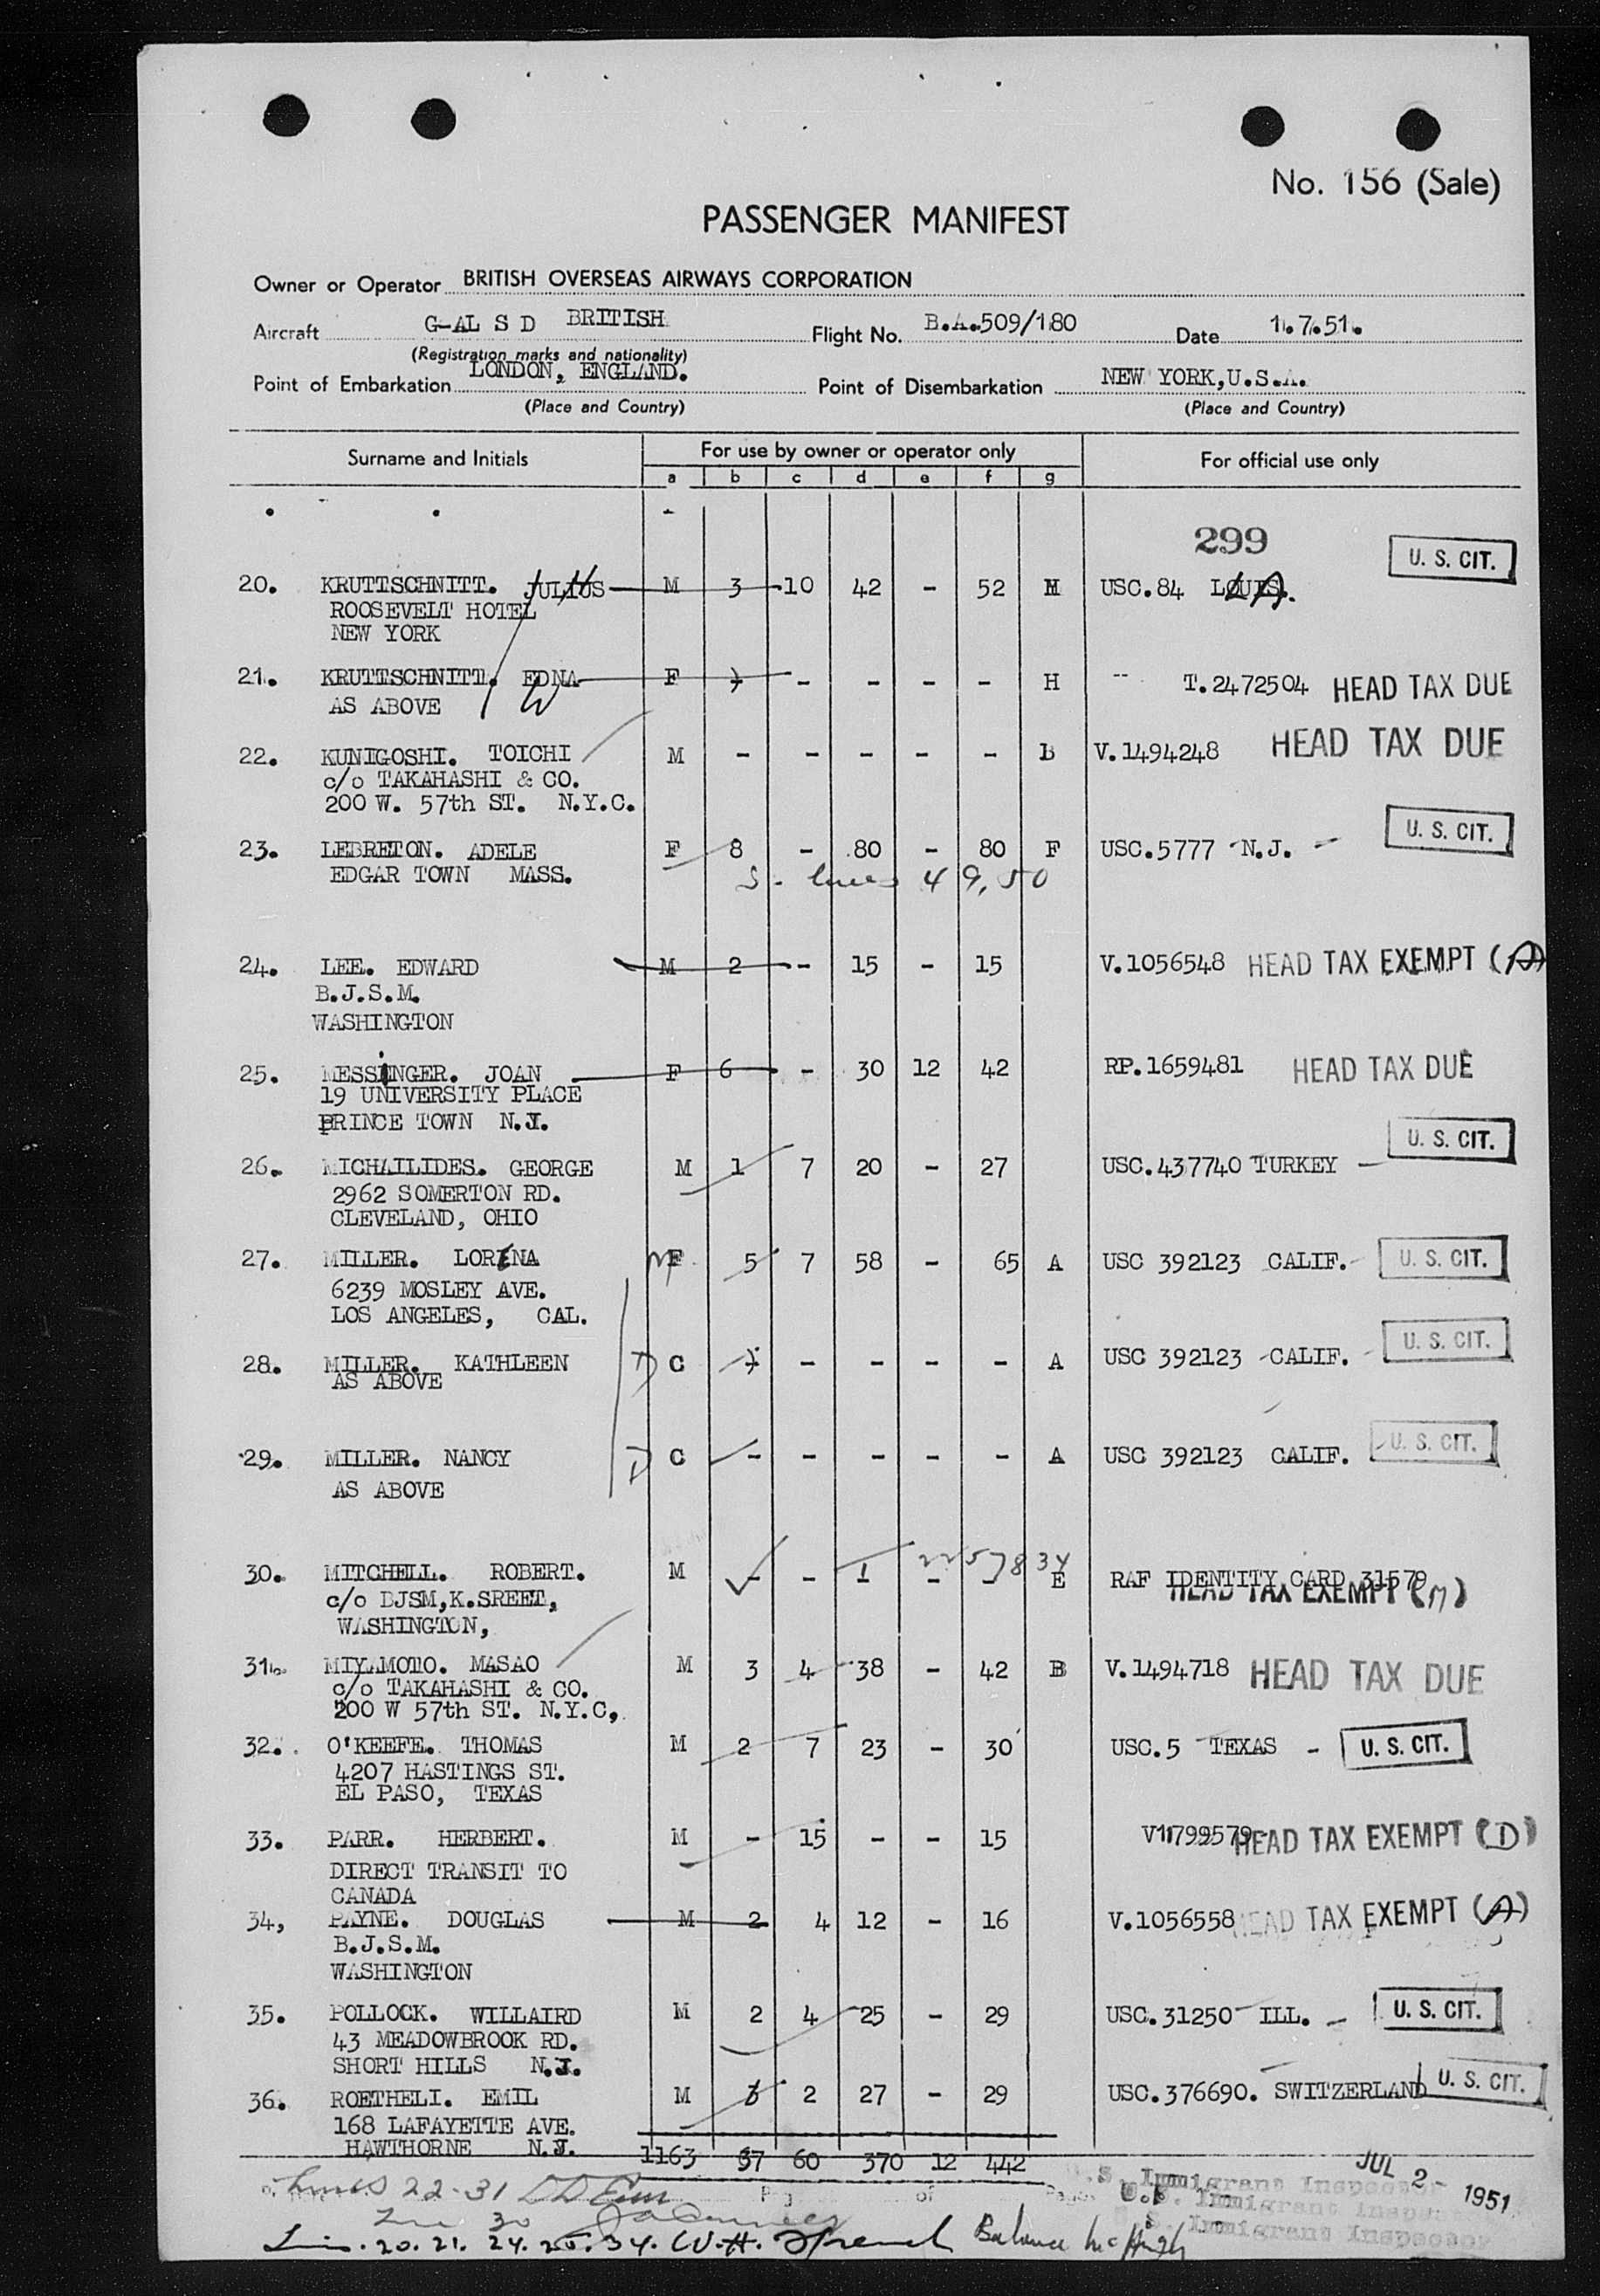 No. 156 (Sale)
PASSENGER MANIFEST
Owner or Operator BRITISH OVERSEAS AIRWAYS CORPORATION
Aircraft G-AL S D BRITISH Flight No. B.A.509/180 Date 1.7.51.
(Registration marks and nationality)
Point of Embarkation LONDON, ENGLAND. Point of Disembarkation NEW YORK,U.S.A.
(Place and Country) (Place and Country)
Surname and Initials For use by owner or operator only For official use only
a b c d e f g
299
U. S. CIT.
20. KRUTTSCHNITT. JULIUS M 3 10 42 - 52 H USC.84 LOUIS. LA.
ROOSEVELT HOTEL
NEW YORK
21. KRUTTSCHNITT. EDNA F ) - - - - H -- T.2472504 HEAD TAX DUE
AS ABOVE W
22. KUNIGOSHI. TOICHI M - - - - - B V.1494248 HEAD TAX DUE
c/o TAKAHASHI & CO.
200 W. 57th ST. N.Y.C.
23. LEBRETON. ADELE F 8 - 80 - 80 F USC.5777 N.J. - U. S. CIT.
EDGAR TOWN MASS. 49,50
24. LEE. EDWARD M 2 - 15 - 15 V.1056548 HEAD TAX EXEMPT (A)
B.J.S.M.
WASHINGTON
25. MESSINGER. JOAN F 6 - 30 12 42 RP.1659481 HEAD TAX DUE
19 UNIVERSITY PLACE
PRINCE TOWN N.J.
26. MICHAILIDES. GEORGE M 1 7 20 - 27 USC.437740 TURKEY - U. S. CIT.
2962 SOMERTON RD.
CLEVELAND, OHIO
27. MILLER. LORENA M F 5 7 58 - 65 A USC 392123 CALIF. U. S. CIT.
6239 MOSLEY AVE.
LOS ANGELES, CAL.
28. MILLER. KATHLEEN D C ) - - - - A USC 392123 CALIF. U. S. CIT.
AS ABOVE
29. MILLER. NANCY D C - - - - - A USC 392123 CALIF. U. S. CIT.
AS ABOVE
30. MITCHELL. ROBERT. M - - 1 - - E RAF IDENTITY CARD 31579
c/o BJSM,K.SREET, HEAD TAX EXEMPT
WASHINGTON,
31. MIYAMOTO. MASAO M 3 4 38 - 42 B V.1494718 HEAD TAX DUE
c/o TAKAHASHI & CO.
200 W 57th ST. N.Y.C,
32. O'KEEFE. THOMAS M 2 7 23 - 30 USC.5 TEXAS - U. S. CIT.
4207 HASTINGS ST.
EL PASO, TEXAS
33. PARR. HERBERT. M - 15 - - 15 V1799579 HEAD TAX EXEMPT (D)
DIRECT TRANSIT TO
CANADA
34, PAYNE. DOUGLAS M 2 4 12 - 16 V.1056558 HEAD TAX EXEMPT (A)
B.J.S.M.
WASHINGTON
35. POLLOCK. WILLAIRD M 2 4 25 - 29 USC.31250 ILL. - U. S. CIT.
43 MEADOWBROOK RD.
SHORT HILLS N.J.
36. ROETHELI. EMIL M 3 2 27 - 29 USC.376690. SWITZERLAND U. S. CIT.
168 LAFAYETTE AVE.
HAWTHORNE N.J.
1163 37 60 370 12 442
JUL 2 1951
Lines 22-31
U.S. Immigrant Inspector
U.S. Immigrant Inspector
Line 30
U.S. Immigrant Inspector
Lin. 20. 21. 24. 25. 34. W.H. Balance McHugh